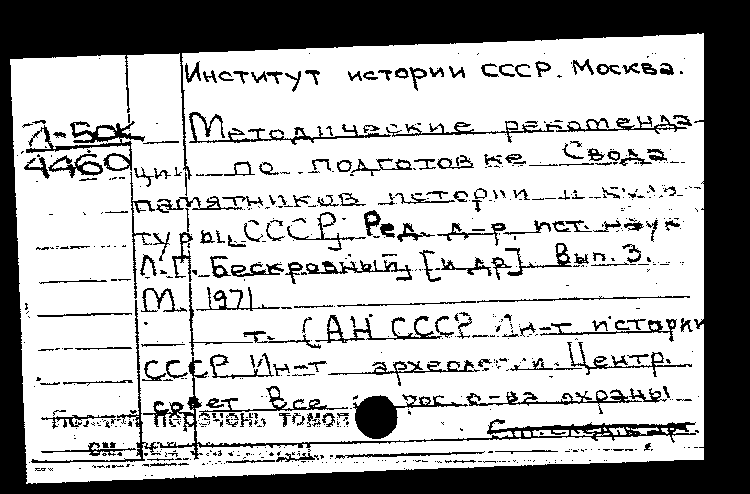 Институт истории СССР. Москва.
Л-50К
4460
Методические рекоменда-
ции по подготовке Свода
памятников истории и куль-
туры СССР. Ред. д-р ист. наук
Л.Г. Бескровный, [и др]. Вып. 3.
М. 1971.
т. (АН СССР Ин-т истории
СССР. Ин-т археологии. Центр.
совет о-ва охраны
Полный перечень томов
см.
См. след. карт.